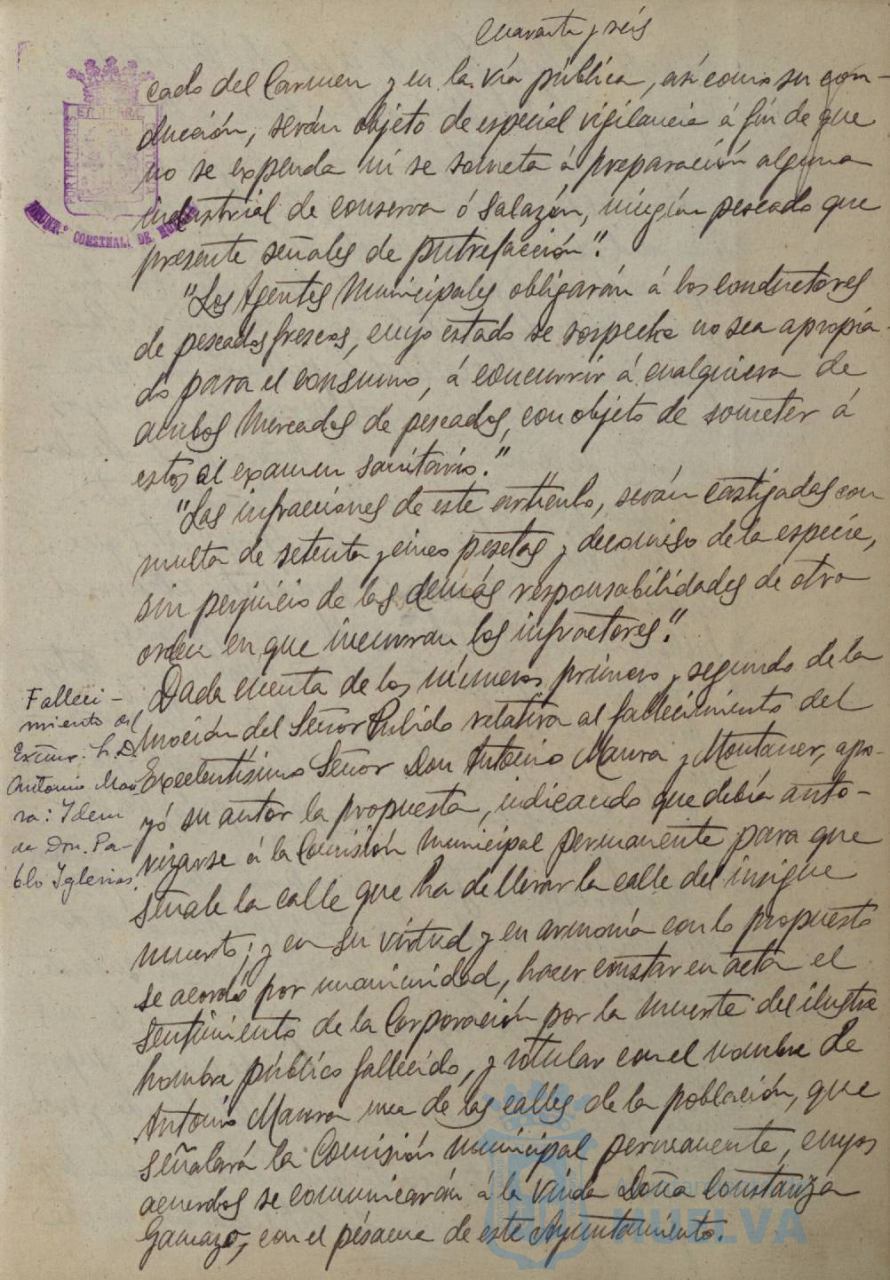 Cuarenta y seis
cado del Carmen y en la vía pública, así como su con-
ducción, serán objeto de especial vigilancia á fin de que
no se expenda ni se someta á preparación alguna
industrial de conserva ó salazón, ningún pescado que
presente señales de putrefacción".
"Los Agentes Municipales obligarán á los conductores
de pescados frescos, cuyo estado se sospeche no sea apropia-
do para el consumo, á concurrir á cualquiera de
ambos Mercados de pescados, con objeto de someter á
estos al examen sanitario."
"Las infracciones de este artículo, serán castigadas con
multa de setenta y cinco pesetas y decomiso de la especie,
sin perjuicio de las demás responsabilidades de otro
orden en que incurran los infractores."
Falleci-
miento del
Excmo. Sr. D.
Antonio Mau-
ra: Idem
de Don Pa-
blo Iglesias.
Dada cuenta de los números primero y segundo de la
moción del Señor Pulido relativa al fallecimiento del
Excelentísimo Señor Don Antonio Maura y Montaner, apo-
yó su autor la propuesta, indicando que debía auto-
rizarse á la Comisión Municipal permanente para que
señale la calle que ha de llevar la calle del insigne
muerto; y en su virtud y en armonía con lo propuesto
se acordó por unanimidad, hacer constar en acta el
sentimiento de la Corporación por la muerte del ilustre
hombre público fallecido, y rotular con el nombre de
Antonio Maura una de las calles de la población, que
señalará la Comisión Municipal permanente, cuyos
acuerdos se comunicarán á la viuda Doña Constanza
Gamazo, con el pésame de este Ayuntamiento.
HUELVA